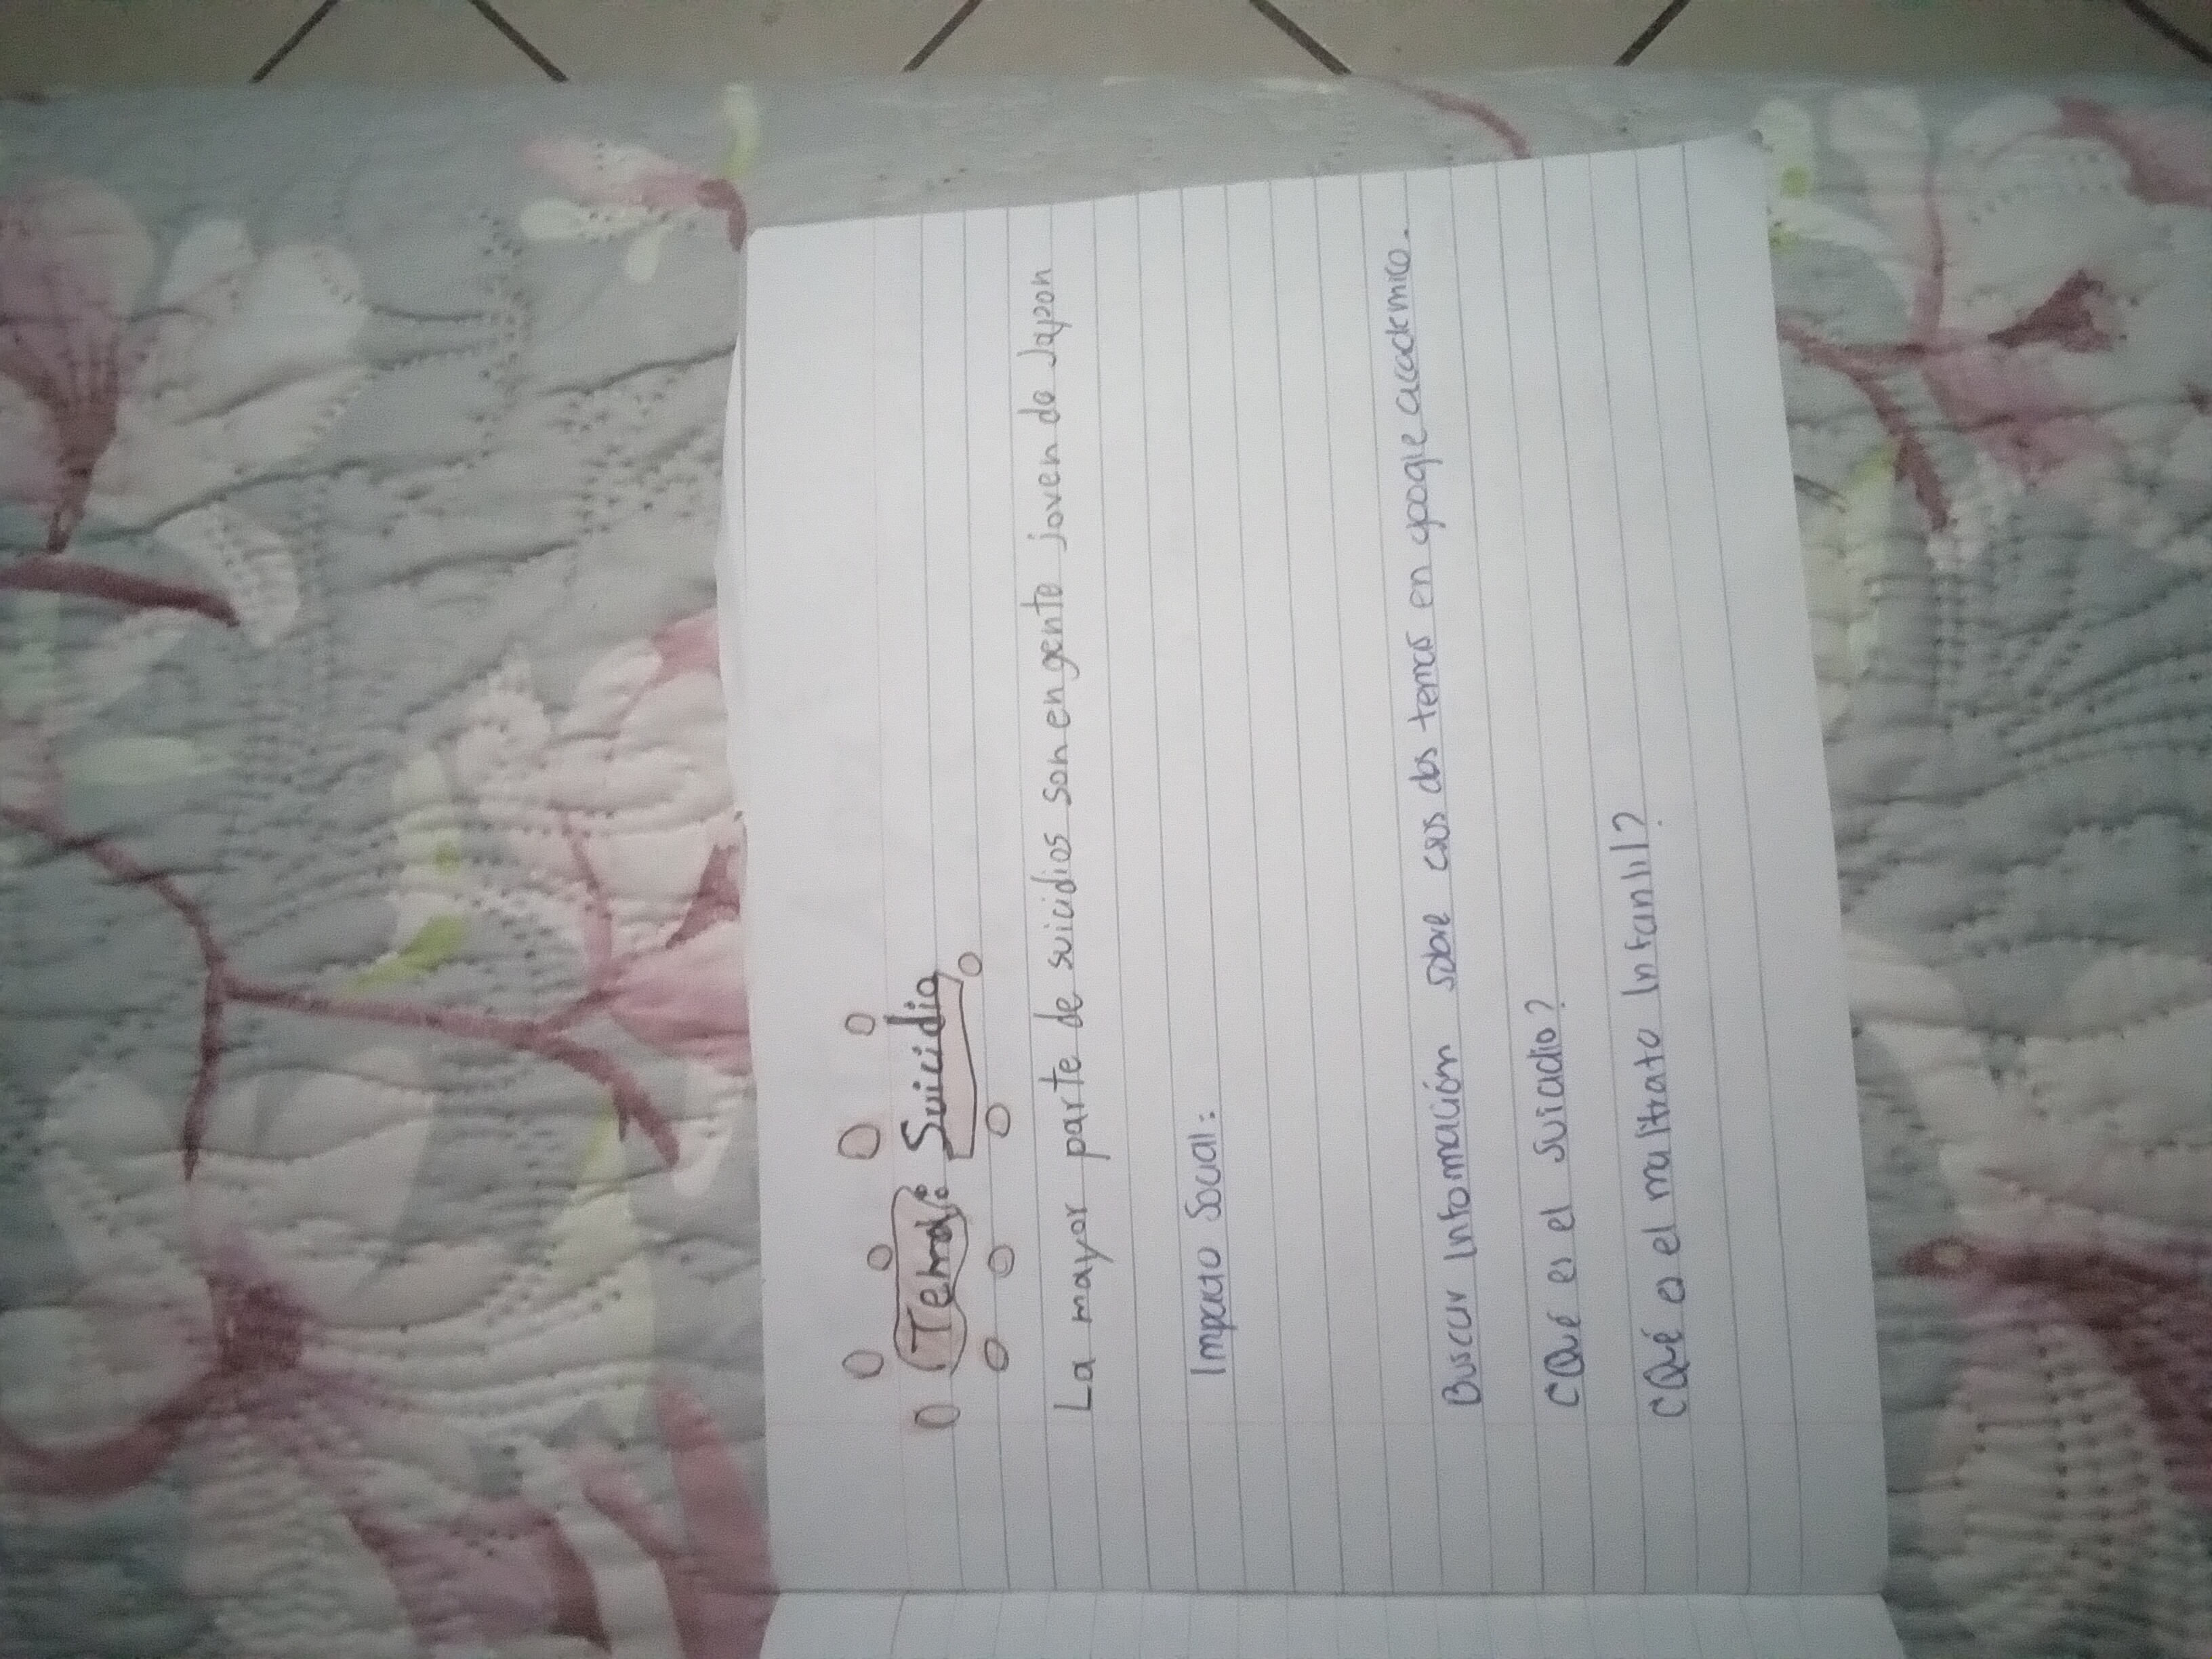 Tema: Suicidio
La mayor parte de suicidios son en gente joven de Japon
Impacto Social:
Buscar Infomación sobre esos dos temas en google academico.
¿Qué es el suicidio?
¿Qué es el maltrato Infantil?